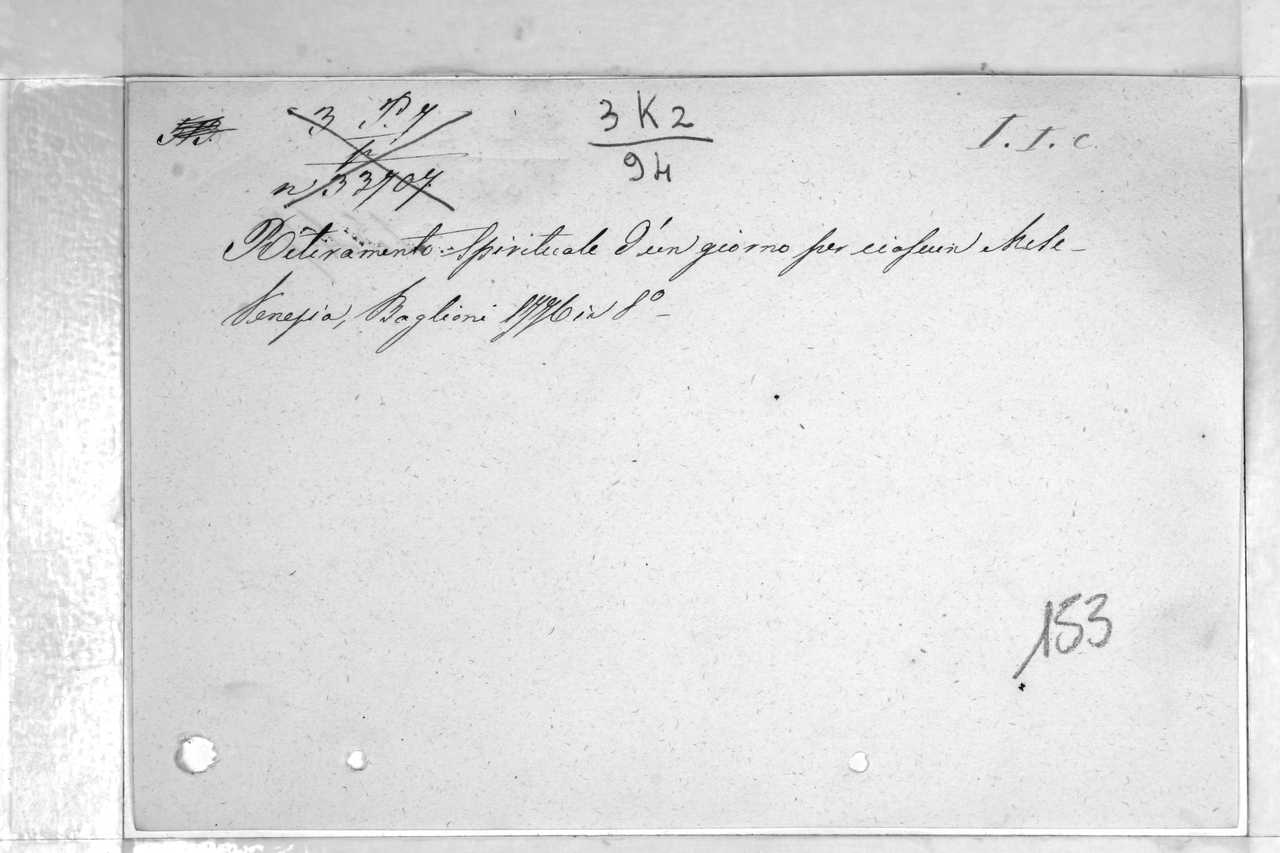 3 K 2
94
I. I. c.
3 P. 7
n 33707
Ritiramento Spirituale d'un giorno per ciascun Mese -
Venezia, Baglioni 1776 in 8° -
153